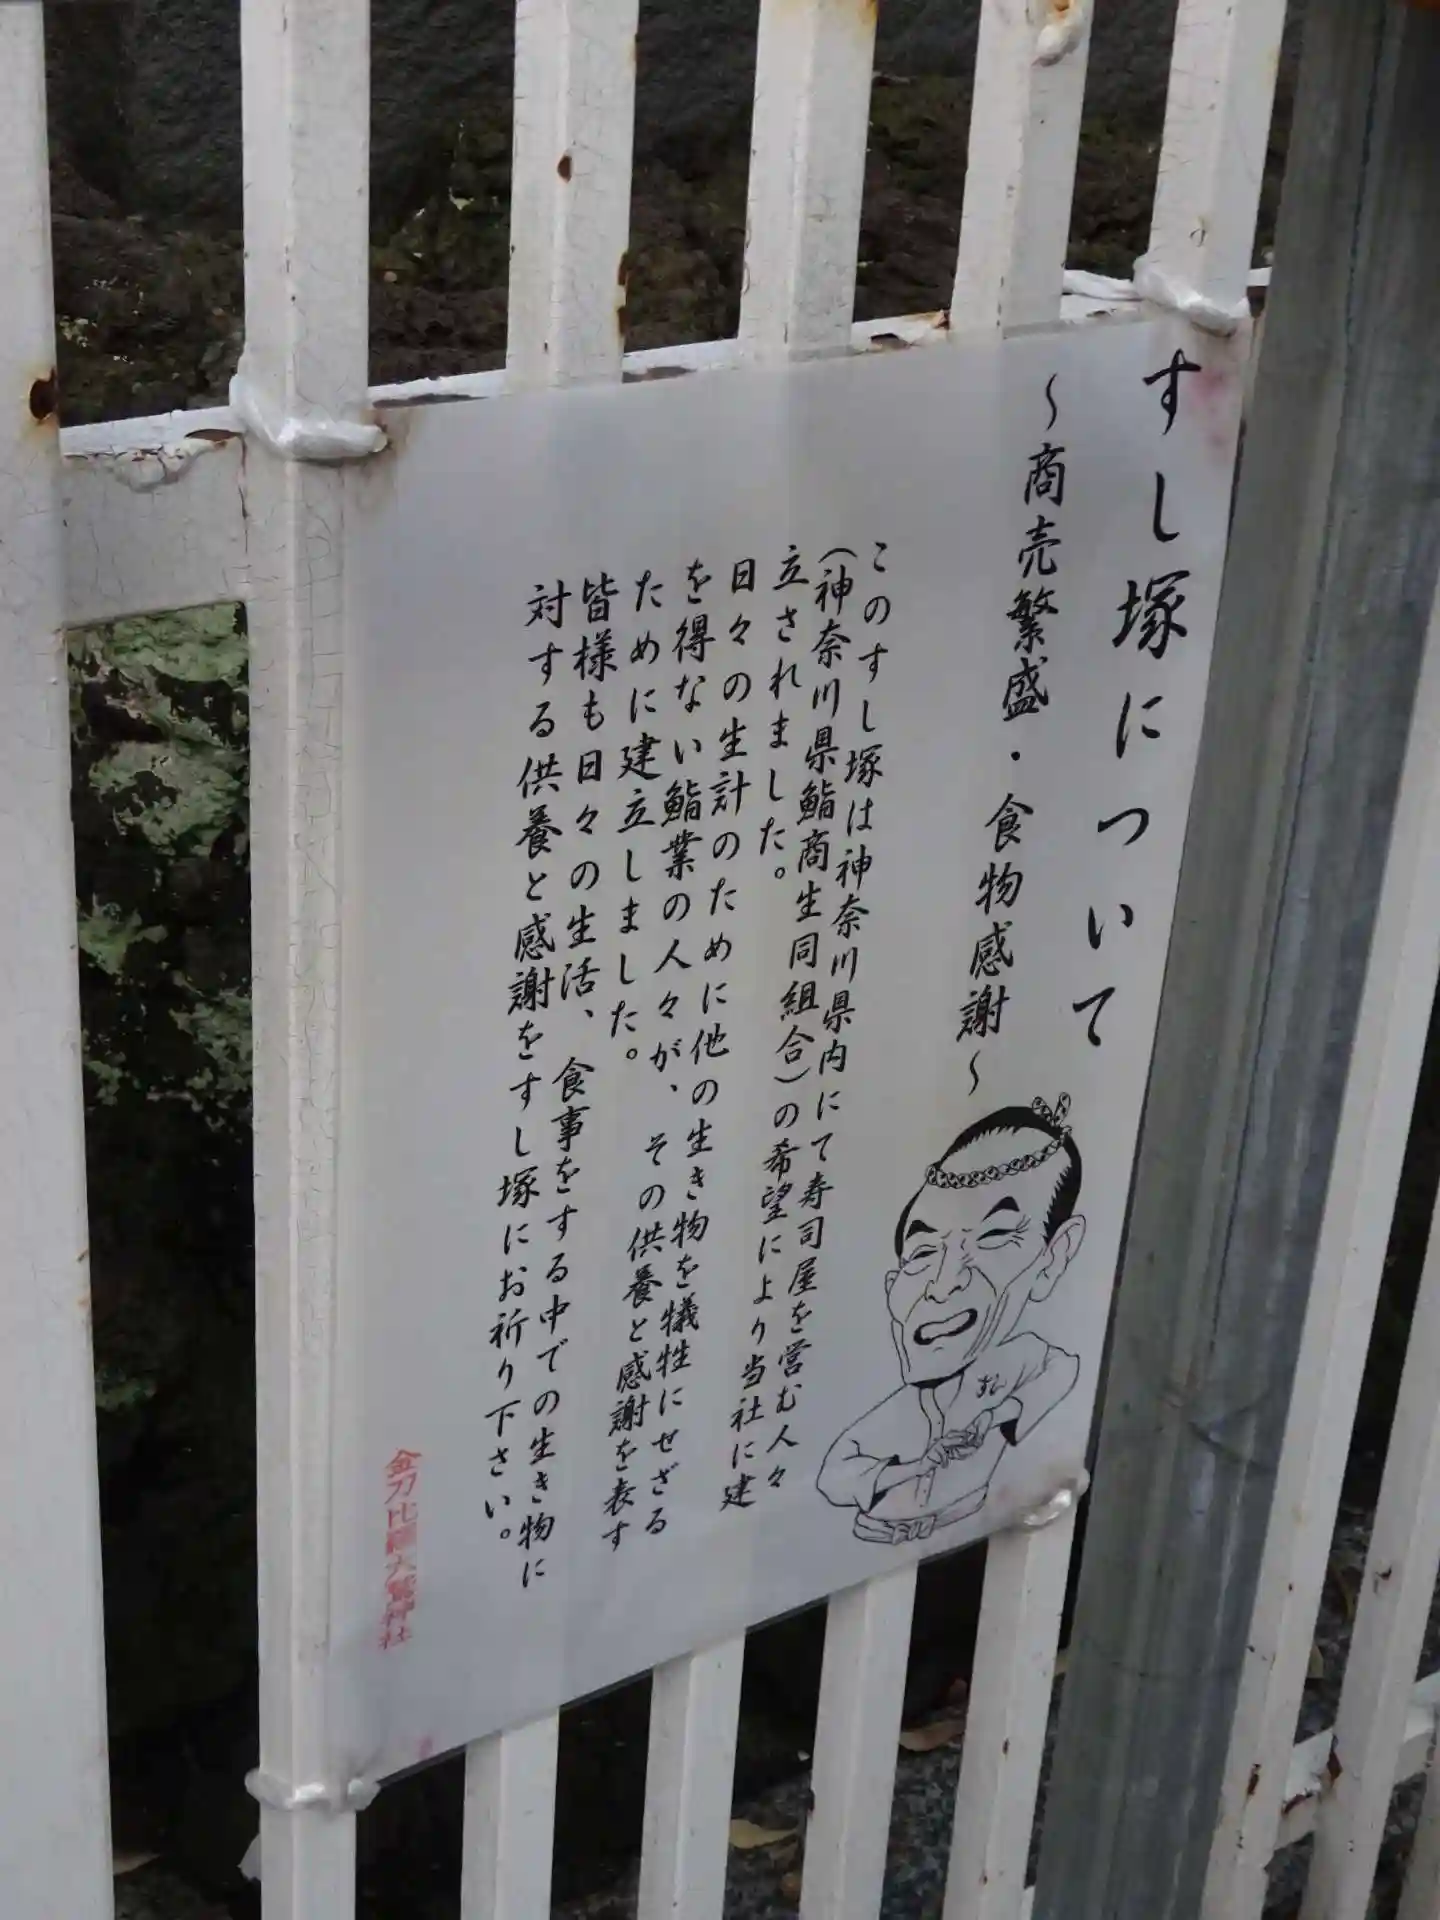 すし塚について
～商売繁盛・食物感謝～
このすし塚は神奈川県内にて寿司屋を営む人々
（神奈川県鮨商生同組合）の希望により当社に建
立されました。
日々の生計のために他の生き物を犠牲にせざる
を得ない鮨業の人々が、その供養と感謝を表す
ために建立しました。
皆様も日々の生活、食事をする中での生き物に
対する供養と感謝をすし塚にお祈り下さい。
金刀比羅大鷲神社
すし